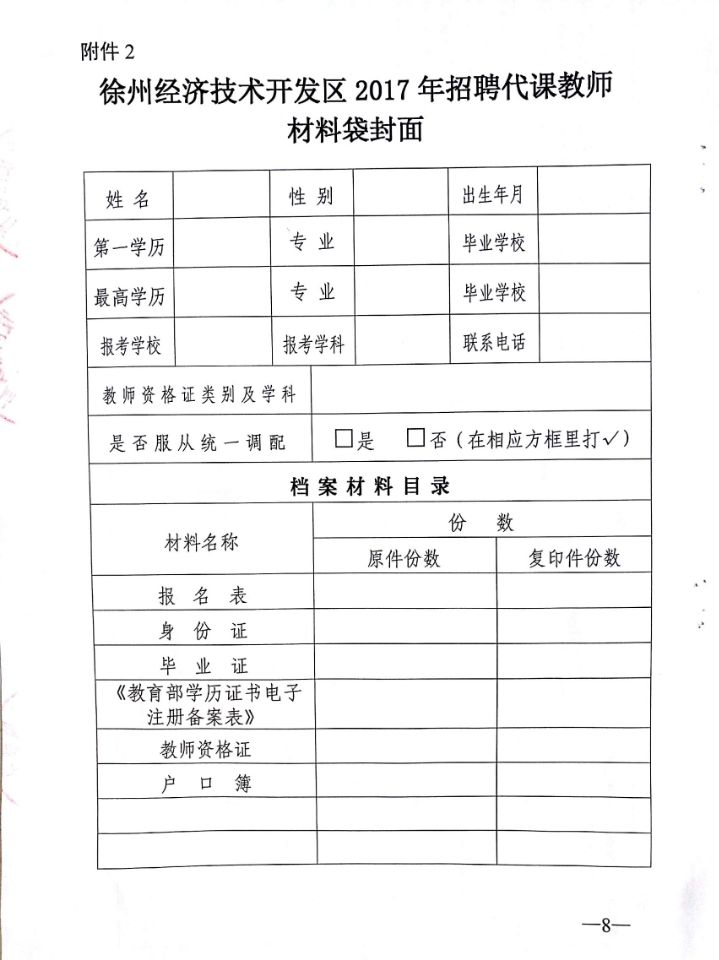 附件 2
徐州经济技术开发区 2017 年招聘代课教师
材料袋封面
姓 名 性 别 出生年月
第一学历 专 业 毕业学校
最高学历 专 业 毕业学校
报考学校 报考学科 联系电话
教师资格证类别及学科
是否服从统一调配 □是 □否（在相应方框里打✓）
档案材料目录
材料名称 份 数
原件份数 复印件份数
报 名 表
身 份 证
毕 业 证
《教育部学历证书电子
注册备案表》
教师资格证
户 口 簿
—8—